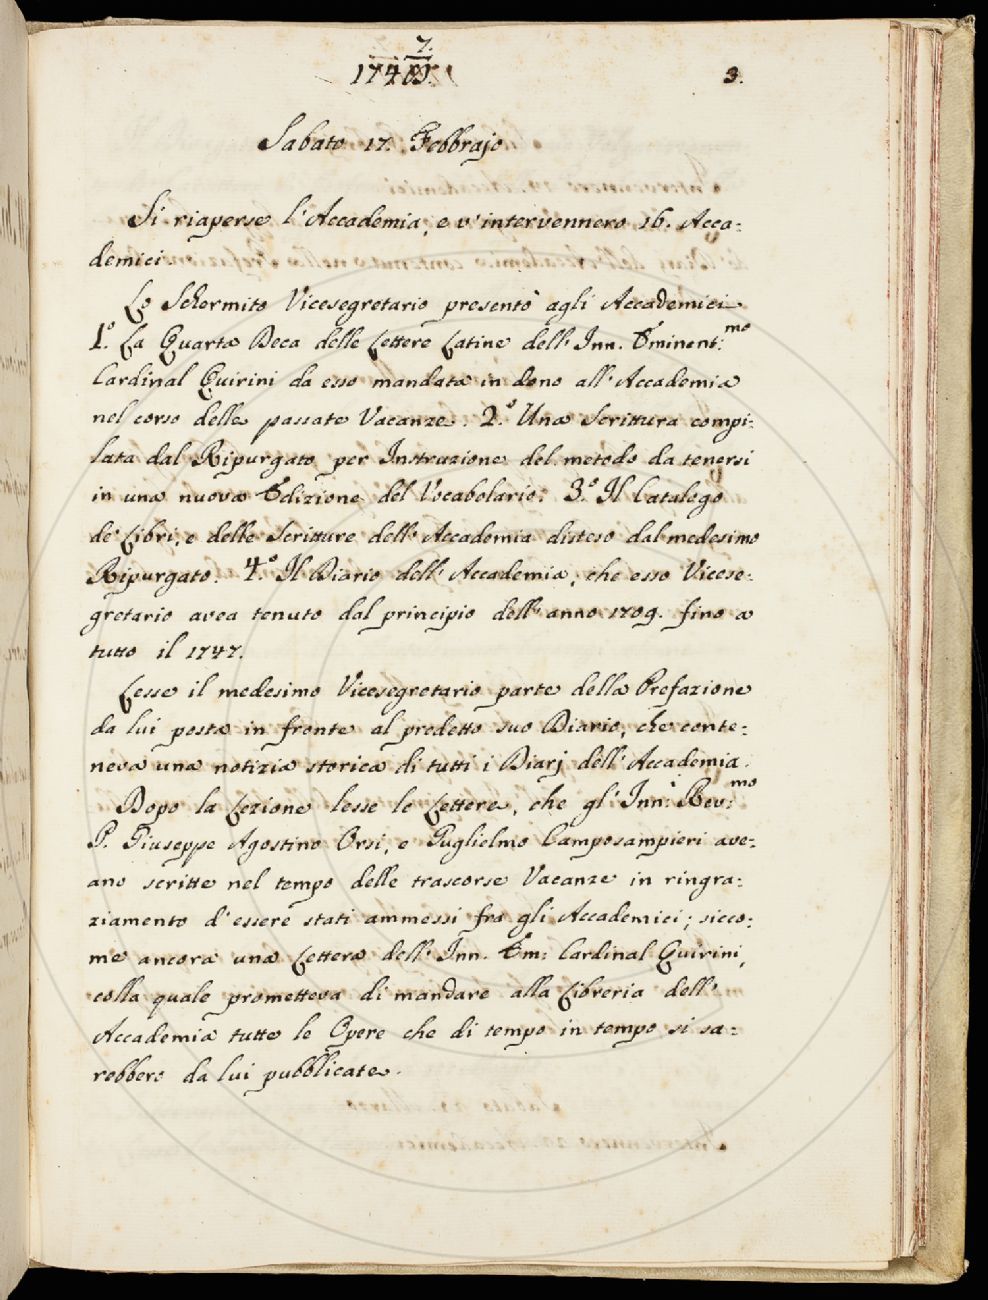 7.
174
3.
Sabato 17. Febbrajo
Si riaperse l'Accademia, e v'intervennero 16. Acca:
demici.
Lo Schermito Vicesegretario presentò agli Accademici
1.° La Quarta Deca delle Lettere Latine dell' Inn. Eminent:mo
Cardinal Quirini da esso mandata in dono all' Accademia
nel corso delle passate Vacanze. 2.° Una Scrittura compi:
lata dal Ripurgato per Instruzione del metodo da tenersi
in una nuova Edizione del Vocabolario: 3.° Il Catalogo
de' Libri, e delle Scritture dell' Accademia disteso dal medesimo
Ripurgato. 4.° Il Diario dell' Accademia, che esso Vicese:
gretario avea tenuto dal principio dell' anno 1709. fino a
tutto il 1747.
Lesse il medesimo Vicesegretario parte della Prefazione
da lui posta in fronte al predetto suo Diario, che conte:
neva una notizia storica di tutti i Diarj dell' Accademia.
Dopo la Lezione lesse le Lettere, che gl' Inn:i Rev:mo
P. Giuseppe Agostino Orsi, e Guglielmo Camposampieri ave:
ano scritte nel tempo delle trascorse Vacanze in ringra:
ziamento d'essere stati ammessi fra gli Accademici; sicco:
me ancora una Lettera dell' Inn. Em: Cardinal Quirini,
colla quale prometteva di mandare alla Libreria dell'
Accademia tutte le Opere che di tempo in tempo si sa:
rebbero da lui pubblicate.